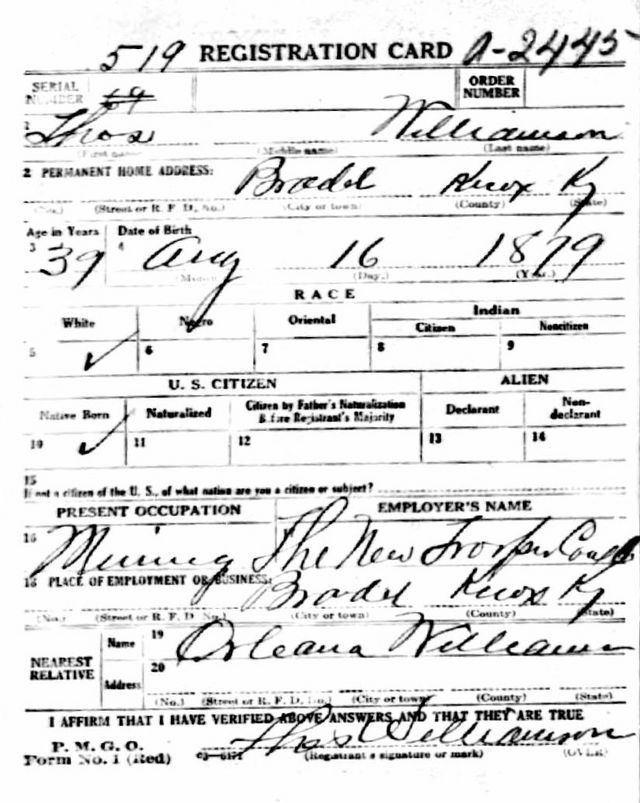 519 REGISTRATION CARD A-2445
SERIAL NUMBER 69 ORDER NUMBER
1 Thos Williamson
(First name) (Middle name) (Last name)
2 PERMANENT HOME ADDRESS: Knox Ky
(No.) (Street or R. F. D. No.) (City or town) (County) (State)
Age in Years Date of Birth
3 39 4 Aug 16 1879
(Month) (Day.) (Year.)
RACE
White Negro Oriental Indian
Citizen Noncitizen
5 ✓ 6 7 8 9
U. S. CITIZEN ALIEN
Native Born Naturalized Citizen by Father's Naturalization Before Registrant's Majority Declarant Non-declarant
10 ✓ 11 12 13 14
15
If not a citizen of the U. S., of what nation are you a citizen or subject?
PRESENT OCCUPATION EMPLOYER'S NAME
16 Mining The New
18 PLACE OF EMPLOYMENT OR BUSINESS: Knox Ky
(No.) (Street or R. F. D. No.) (City or town) (County) (State)
NEAREST RELATIVE Name 19 Orleana Williamson
Address 20
(No.) (Street or R. F. D. No.) (City or town) (County) (State)
I AFFIRM THAT I HAVE VERIFIED ABOVE ANSWERS AND THAT THEY ARE TRUE
P. M. G. O.
Form No. 1 (Red) c3-6171 Thos Williamson
(Registrant's signature or mark) (OVER)